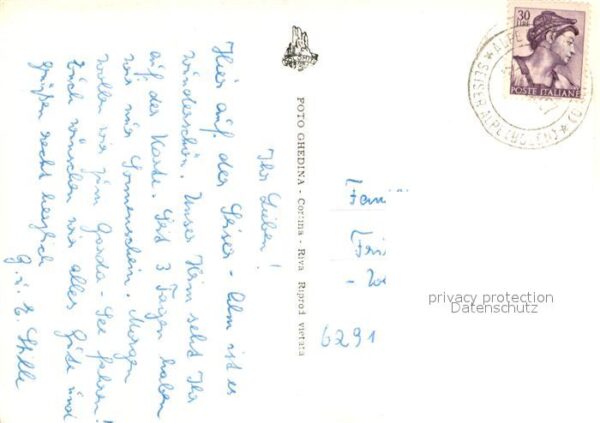 Ihr Lieben!
Hier auf der Seiser-Alm ist es
wunderschön. Unser Heim seht Ihr
auf der Karte. Seit 3 Tagen haben
wir nur Sonnenschein. Morgen
wollen wir zum Garda-See fahren!
Euch wünschen wir alles Gute und
grüßen recht herzlich
G. u. E. Stille
FOTO GHEDINA - Cortina - Riva Riprod. vietata
30
LIRE
POSTE ITALIANE
ALPE
SEISER ALPE (BOLZANO)
Fami
- 
6291
privacy protection
Datenschutz